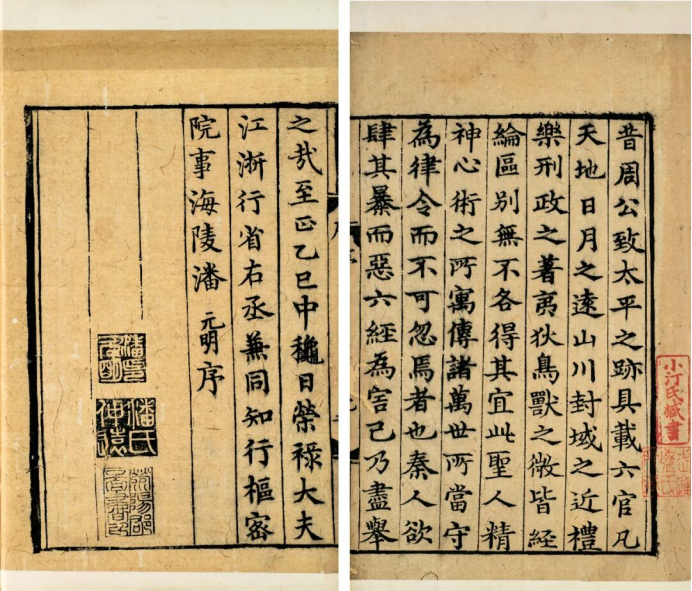 昔周公致太平之跡具載六官凡
天地日月之遠山川封域之近禮
樂刑政之著夷狄鳥獸之微皆經
綸區別無不各得其宜此聖人精
神心術之所寓傳諸萬世所當守
為律令而不可忽焉者也秦人欲
肆其暴而惡六經為害己乃盡舉
小汀氏藏書
之哉至正乙巳中龝日榮祿大夫
江浙行省右丞兼同知行樞密
院事海陵潘元明序
潘氏
仲遠